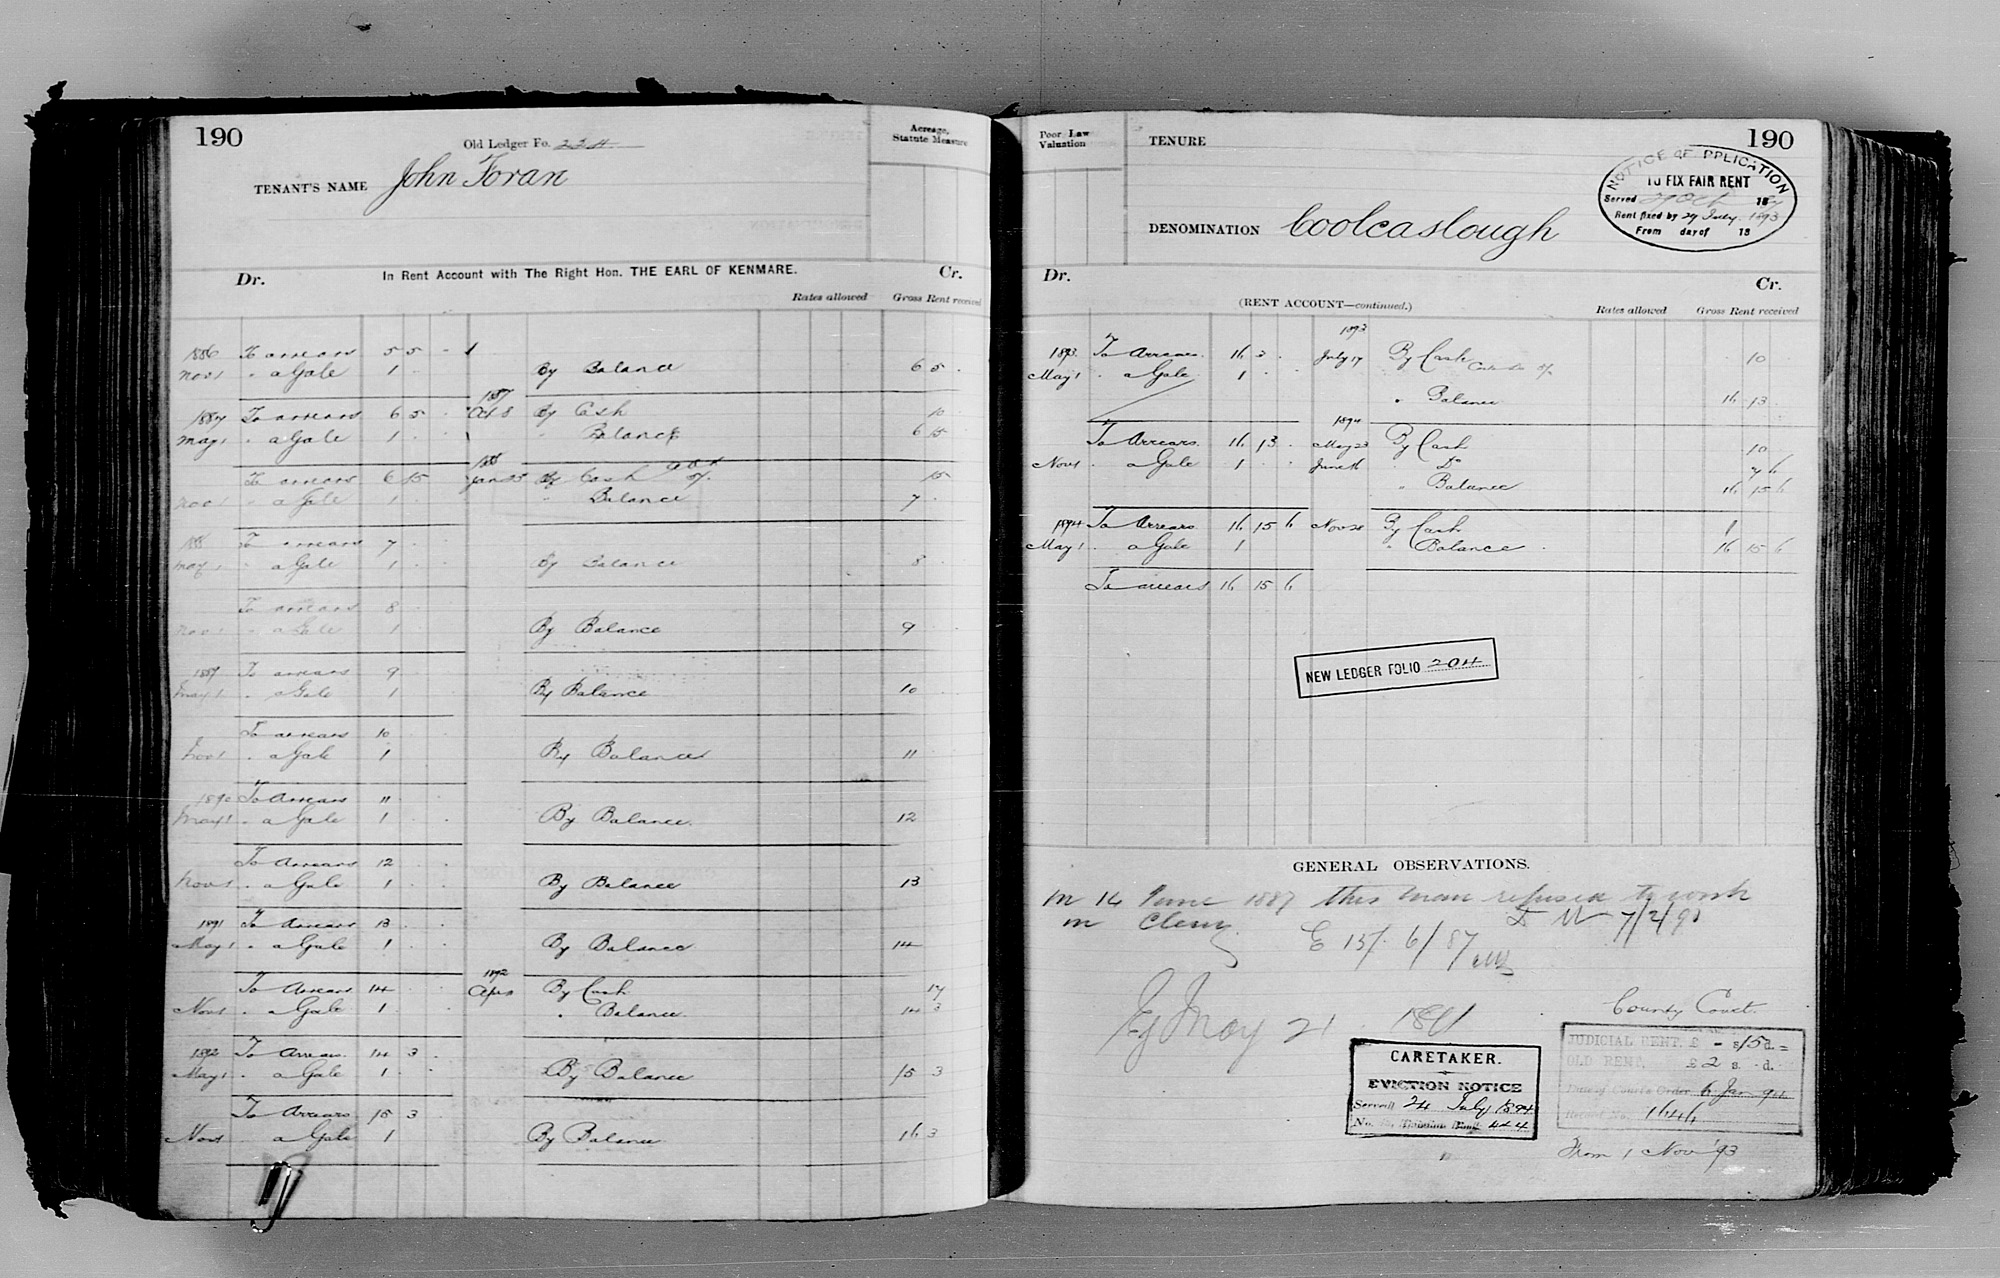 190
Old Ledger Fo. 234
Acreage, Statute Measure
TENANT'S NAME John Foran
Dr. In Rent Account with The Right Hon. THE EARL OF KENMARE. Cr.
Rates allowed Gross Rent received
1886 To arrears 5 5 -
Nov 1 " a Gale 1 By Balance 6 5 .
1887
1887 To arrears 6 5 By Cash 10
May 1 " a Gale 1 " Balance 6 15
1888
To arrears 6 15 Jan 25 By Cash 15
Nov 1 " a Gale 1 " Balance 7
1888 To arrears 7
May 1 " a Gale 1 By Balance 8
To arrears 8
Nov 1 " a Gale 1 By Balance 9
1889 To arrears 9
May 1 " a Gale 1 By Balance 10
To arrears 10
Nov 1 " a Gale 1 By Balance 11
1890 To Arrears 11
May 1 " a Gale 1 By Balance 12
To Arrears 12
Nov 1 " a Gale 1 By Balance 13
1891 To Arrears 13
May 1 " a Gale 1 By Balance 14
1892
To Arrears 14 By Cash 17
Nov 1 " a Gale 1 " Balance 14 3
1892 To Arrears 14 3
May 1 " a Gale 1 By Balance 15 3
To Arrears 15 3
Nov 1 a Gale 1 By Balance 16 3
Poor Law Valuation
TENURE
190
NOTICE OF APPLICATION
TO FIX FAIR RENT
Served 27 Oct 18
Rent fixed by 29 July 1893
From day of 18
DENOMINATION Coolcaslough
Dr. Cr.
(RENT ACCOUNT—continued.)
Rates allowed Gross Rent received
1893
1893 To Arrears 16 3 . July 17 By Cash 10
May 1 " a Gale 1 . .
" Balance 16 13
1894
To Arrears 16 13 . May 23 By Cash 10
Nov 1 " a Gale 1 . June 16 " Do 7 6
" Balance 16 15 6
1894 To Arrears 16 15 6 Nov 20 By Cash 1
May 1 " a Gale 1 " Balance 16 15 6
To arrears 16 15 6
NEW LEDGER FOLIO 204
GENERAL OBSERVATIONS.
14 June 1887 this man refused to work
in 7/2/90
E 15/- 6/87
Ej May 21 1891
County Court
CARETAKER.
EVICTION NOTICE
Served 24 July 1894
No. 444
JUDICIAL RENT, £ - s. 15 d. =
OLD RENT, £ 2 s. - d. -
Date of Court's Order 6 Jan 94
Record No. 1646
From 1 Nov '93